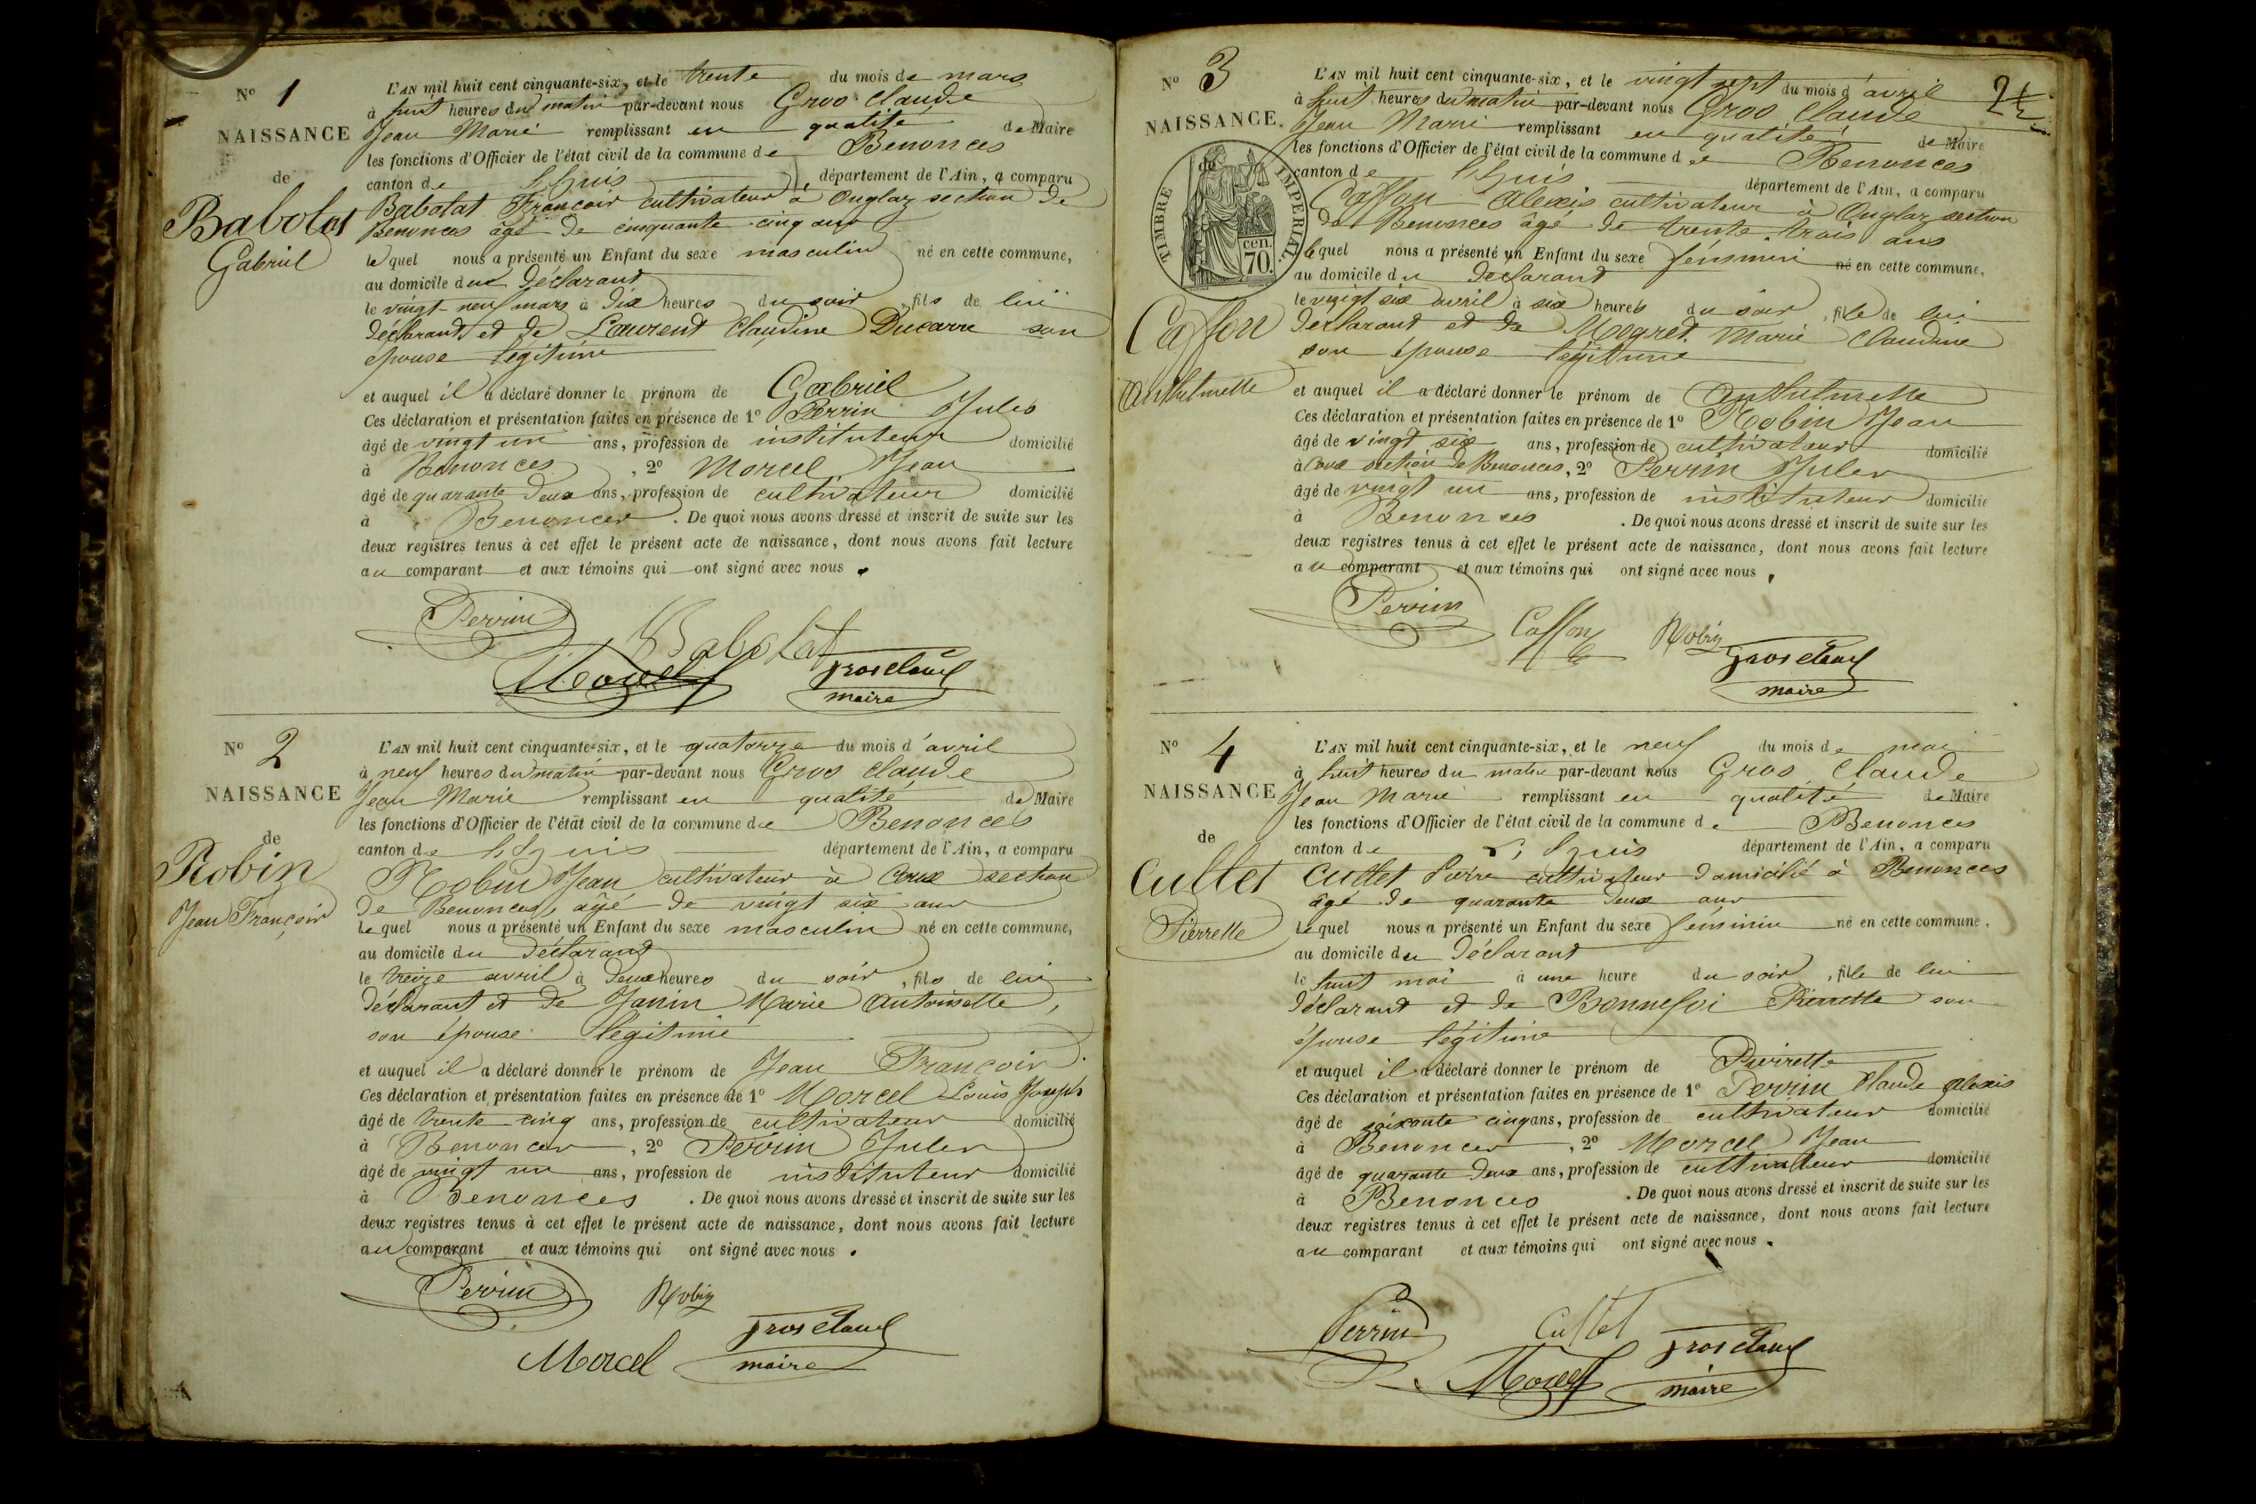 N° 1
NAISSANCE
de
Babolat
Gabriel
L'AN mil huit cent cinquante-six, et le trente du mois de mars
à huit heures du matin par-devant nous Gros Claude
Jean Marie remplissant en qualité de Maire
les fonctions d'Officier de l'état civil de la commune de Benonces
canton de Lhuis département de l'Ain, a comparu
Babolat François cultivateur à Onglaz section de
Benonces âgé de cinquante cinq ans
lequel nous a présenté un Enfant du sexe masculin né en cette commune,
au domicile du déclarant
le vingt-neuf mars à dix heures du soir, fils de lui
déclarant et de Laurent Claudine Ducarre son
épouse légitime
et auquel il a déclaré donner le prénom de Gabriel
Ces déclaration et présentation faites en présence de 1° Perrin Jules
âgé de vingt un ans, profession de instituteur domicilié
à Benonces, 2° Morcel Jean
âgé de quarante deux ans, profession de cultivateur domicilié
à Benonces. De quoi nous avons dressé et inscrit de suite sur les
deux registres tenus à cet effet le présent acte de naissance, dont nous avons fait lecture
au comparant et aux témoins qui ont signé avec nous.
Perrin
Babolat
Morcel
grosclaude
maire
N° 2
NAISSANCE
de
Robin
Jean François
L'AN mil huit cent cinquante-six, et le quatorze du mois d'avril
à neuf heures du matin par-devant nous Gros Claude
Jean Marie remplissant en qualité de Maire
les fonctions d'Officier de l'état civil de la commune de Benonces
canton de Lhuis département de l'Ain, a comparu
Robin Jean cultivateur à Croux section
de Benonces, agé de vingt six ans
lequel nous a présenté un Enfant du sexe masculin né en cette commune,
au domicile du déclarant
le treize avril à deux heures du soir, fils de lui
déclarant et de Janin Marie Antoinette,
son épouse légitime
et auquel il a déclaré donner le prénom de Jean François
Ces déclaration et présentation faites en présence de 1° Morcel Louis Joseph
âgé de trente cinq ans, profession de cultivateur domicilié
à Benonces, 2° Perrin Jules
âgé de vingt un ans, profession de instituteur domicilié
à Benonces. De quoi nous avons dressé et inscrit de suite sur les
deux registres tenus à cet effet le présent acte de naissance, dont nous avons fait lecture
au comparant et aux témoins qui ont signé avec nous.
Perrin
Robin
Morcel
grosclaude
maire
N° 3
NAISSANCE.
de
TIMBRE IMPERIAL.
cen.
70.
Caffon
Anthelmette
L'AN mil huit cent cinquante-six, et le vingt sept du mois d'avril
à huit heures du matin par-devant nous Gros Claude
Jean Marie remplissant en qualité de Maire
les fonctions d'Officier de l'état civil de la commune de Benonces
canton de Lhuis département de l'Ain, a comparu
Caffon Alexis cultivateur à Onglaz section
de Benonces âgé de trente trois ans
lequel nous a présenté un Enfant du sexe féminin né en cette commune,
au domicile du déclarant
le vingt six avril à six heures du soir, fille de lui
déclarant et de Megret Marie Claudine
son épouse légitime
et auquel il a déclaré donner le prénom de Anthelmette
Ces déclaration et présentation faites en présence de 1° Robin Jean
âgé de vingt six ans, profession de cultivateur domicilié
à section de Benonces, 2° Perrin Jules
âgé de vingt un ans, profession de instituteur domicilié
à Benonces. De quoi nous avons dressé et inscrit de suite sur les
deux registres tenus à cet effet le présent acte de naissance, dont nous avons fait lecture
au comparant et aux témoins qui ont signé avec nous,
Perrin
Caffon
Robin
grosclaude
maire
N° 4
NAISSANCE
de
Cullet
Pierrette
L'AN mil huit cent cinquante-six, et le neuf du mois de mai
à huit heures du matin par-devant nous Gros Claude
Jean Marie remplissant en qualité de Maire
les fonctions d'Officier de l'état civil de la commune de Benonces
canton de Lhuis département de l'Ain, a comparu
Cullet Pierre cultivateur domicilié à Benonces
âgé de quarante deux ans
lequel nous a présenté un Enfant du sexe féminin né en cette commune,
au domicile du déclarant
le huit mai à une heure du soir, fille de lui
déclarant et de Bonnefoi Pierrette son
épouse légitime
et auquel il a déclaré donner le prénom de Pierrette
Ces déclaration et présentation faites en présence de 1° Perrin Claude Alexis
âgé de soixante cinq ans, profession de cultivateur domicilié
à Benonces, 2° Morcel Jean
âgé de quarante deux ans, profession de cultivateur domicilié
à Benonces. De quoi nous avons dressé et inscrit de suite sur les
deux registres tenus à cet effet le présent acte de naissance, dont nous avons fait lecture
au comparant et aux témoins qui ont signé avec nous.
Perrin
Cullet
Morcel
grosclaude
maire